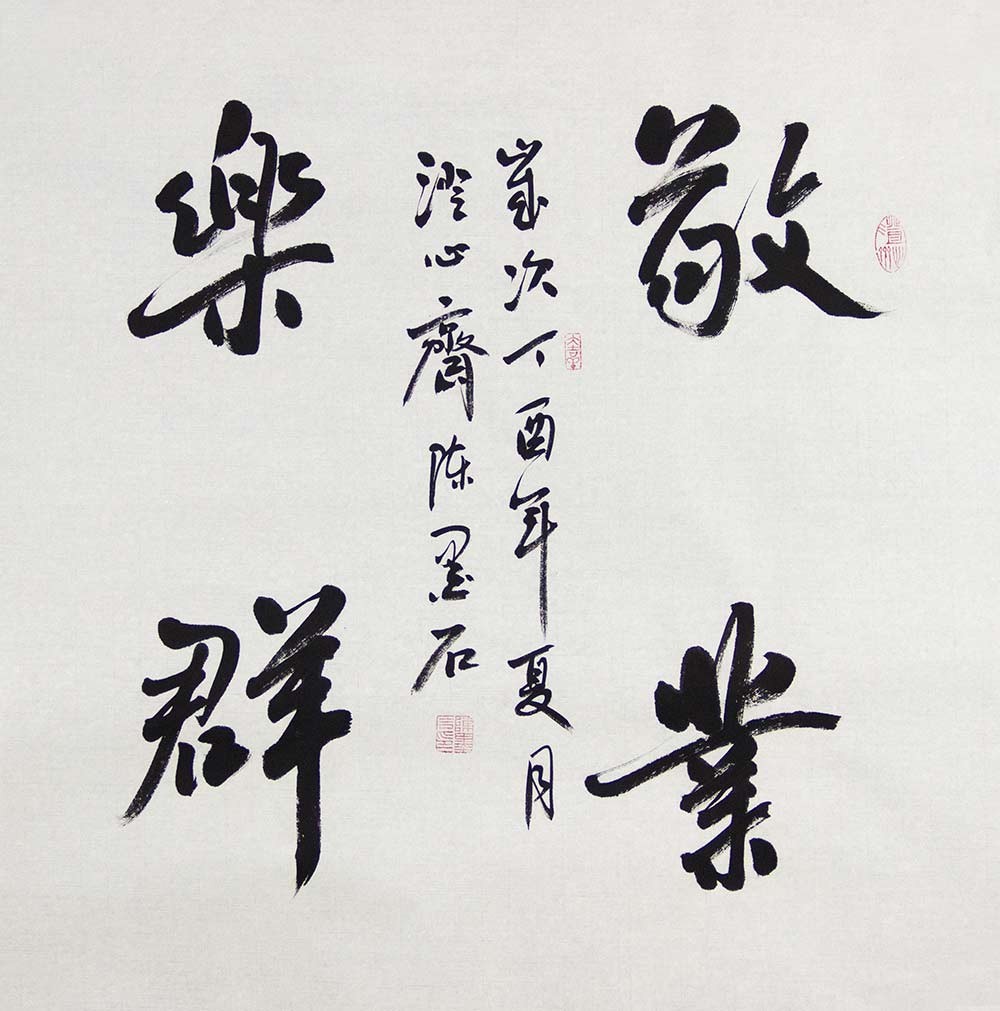 敬業
樂群
歲次丁酉年夏月
澄心齋陈墨石